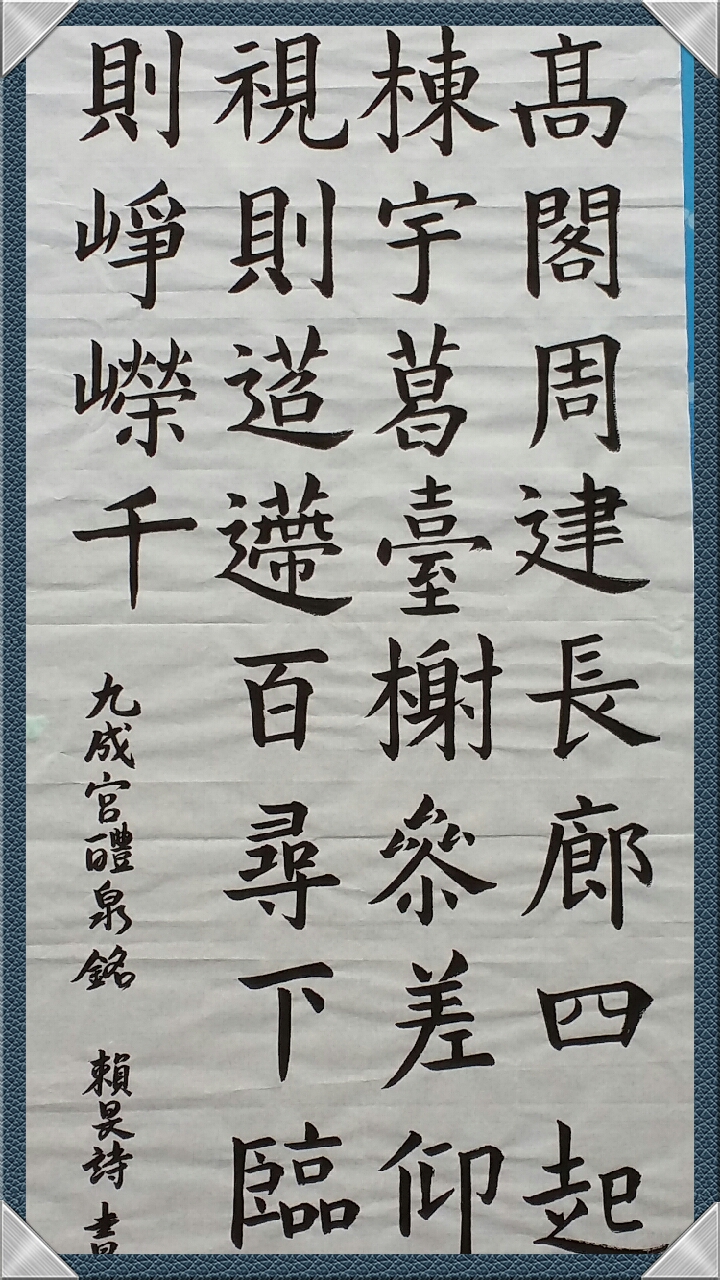 髙閣周建長廊四起
棟宇葛臺榭參差仰
視則迢遰百尋下臨
則崢嶸千
九成宮醴泉銘 賴昊詩 書